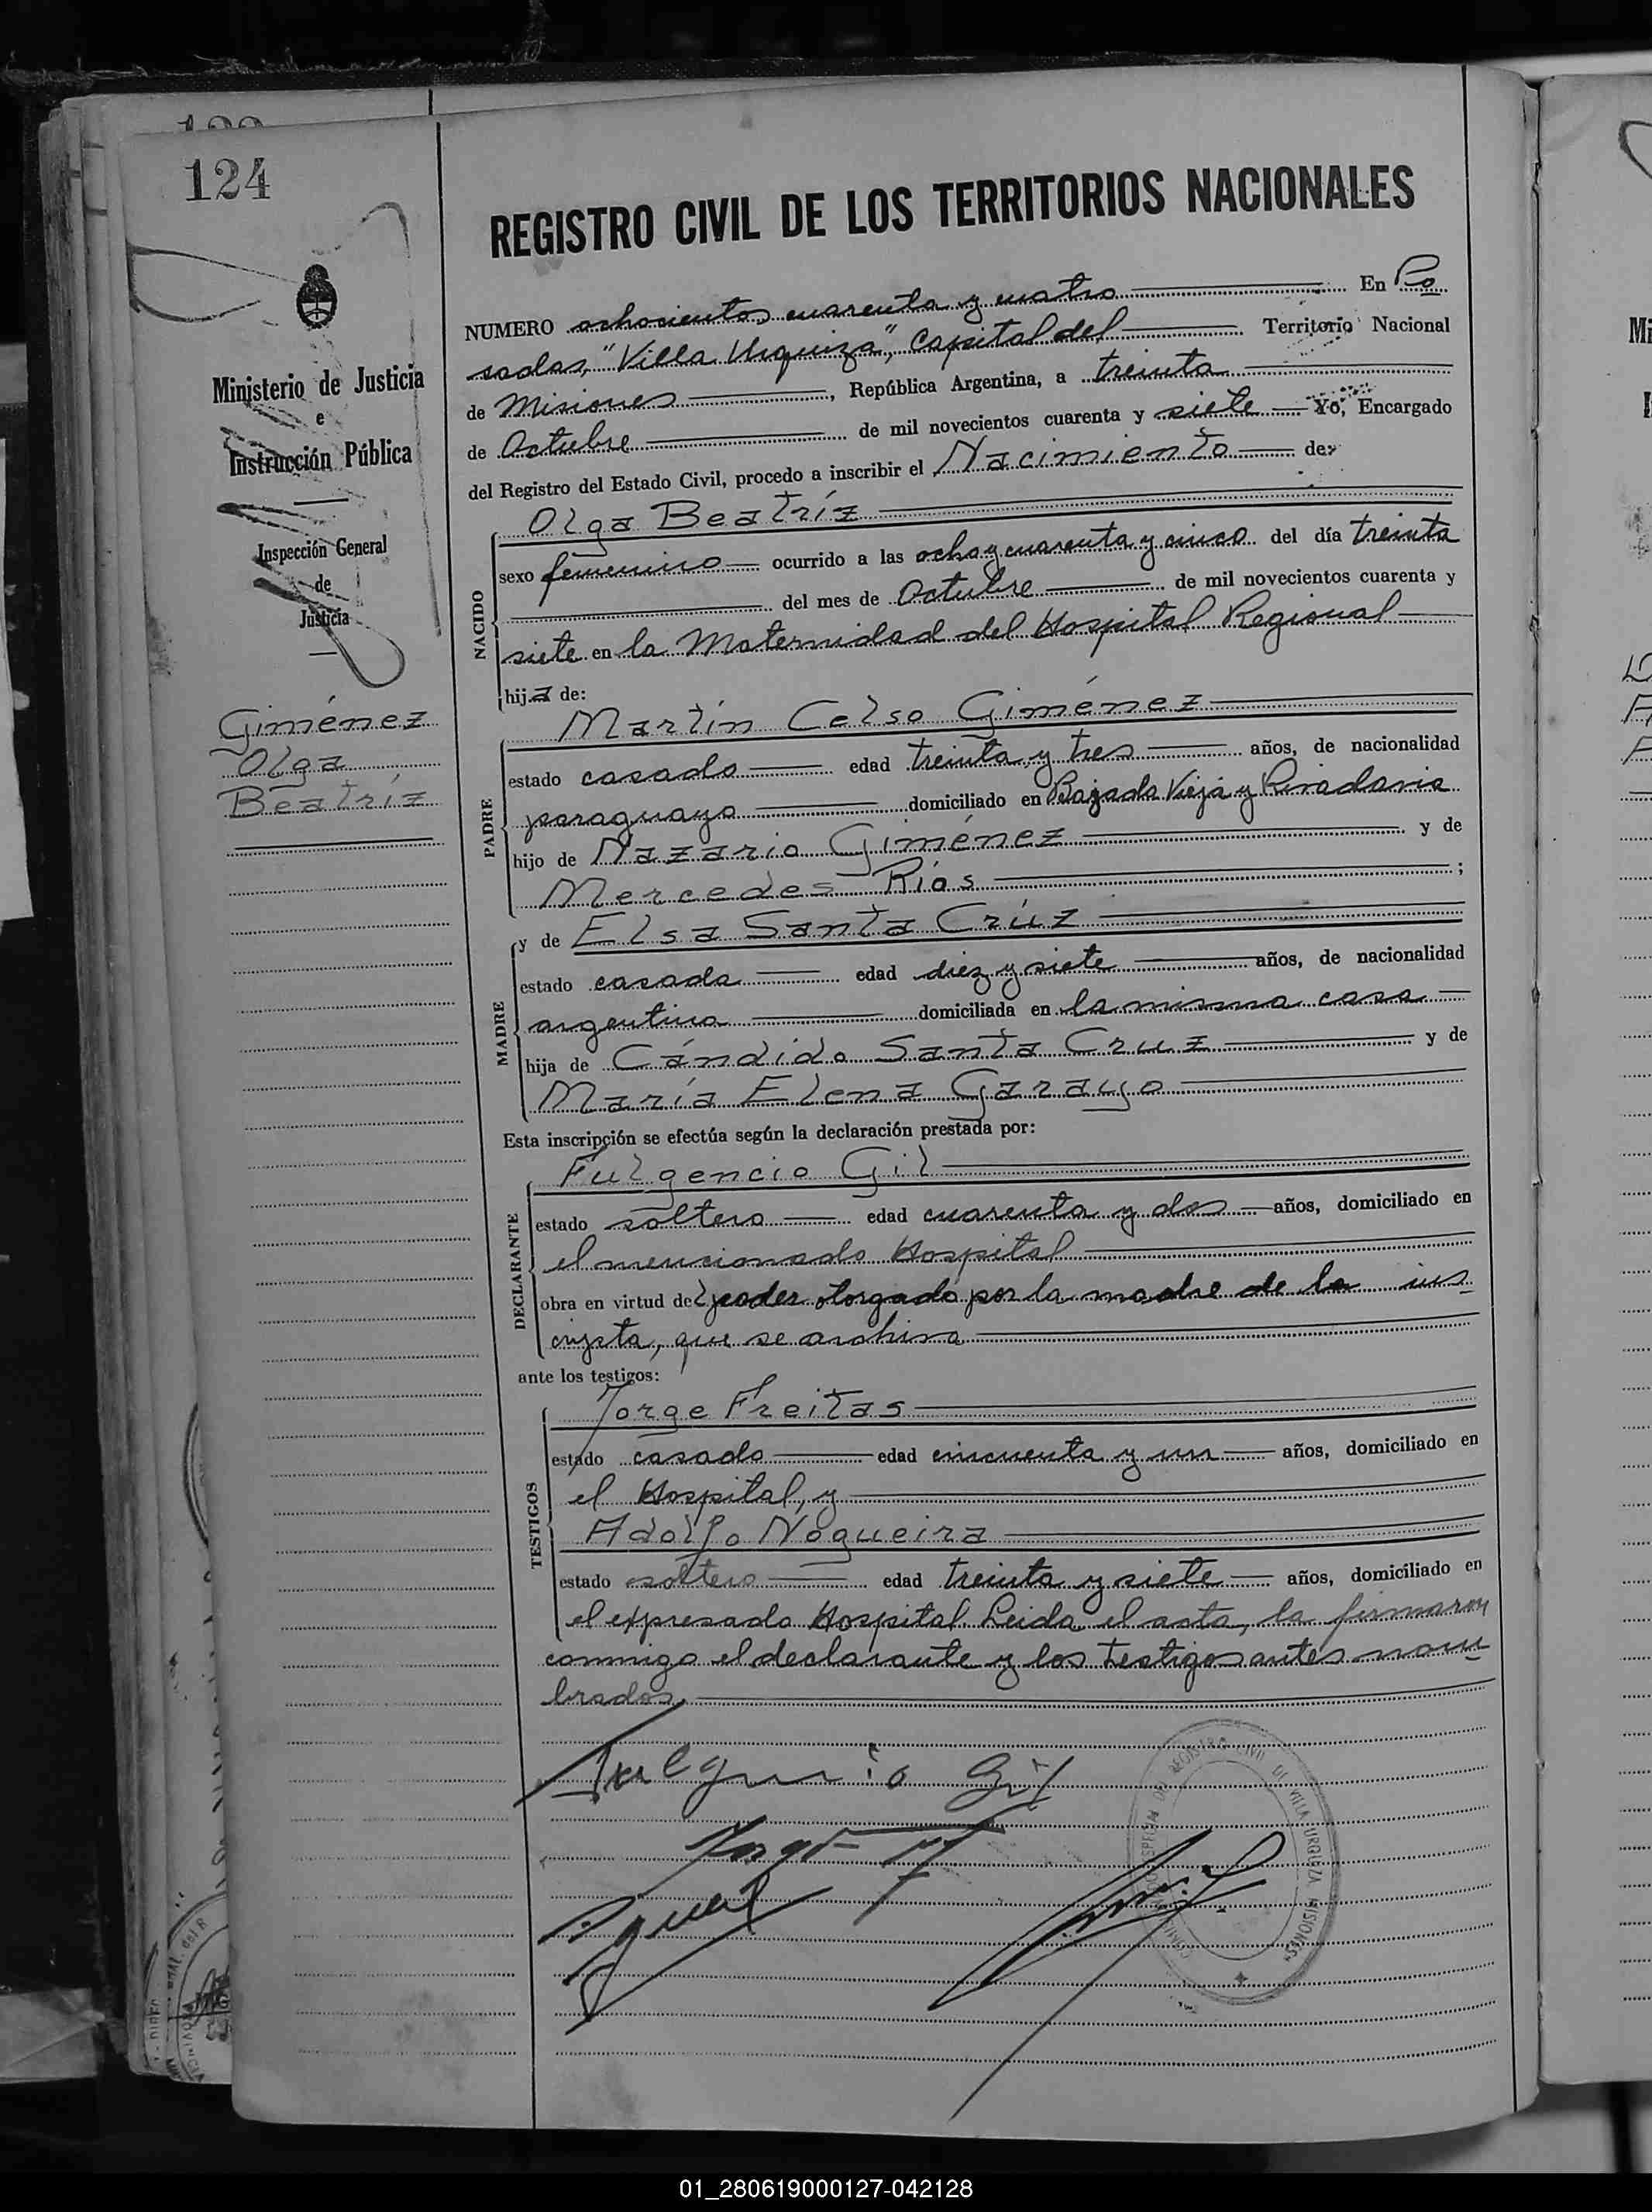 124
REGISTRO CIVIL DE LOS TERRITORIOS NACIONALES
Ministerio de Justicia
e
Instrucción Pública
Inspección General
de
Justicia
Giménez
Olga
Beatríz
NUMERO ochocientos cuarenta y cuatro En Po
sadas, "Villa Urquiza", Capital del Territorio Nacional
de Misiones, República Argentina, a treinta
de Octubre de mil novecientos cuarenta y siete Yo, Encargado
del Registro del Estado Civil, procedo a inscribir el Nacimiento de:
Olga Beatríz
NACIDO
sexo femenino ocurrido a las ocho y cuarenta y cinco del día treinta
del mes de Octubre de mil novecientos cuarenta y
siete en la Maternidad del Hospital Regional
hija de:
Martín Celso Giménez
PADRE
estado casado edad treinta y tres años, de nacionalidad
paraguayo domiciliado en Bajada Vieja y Rivadavia
hijo de Nazario Giménez y de
Mercedes Ríos ;
y de Elsa Santa Crúz
MADRE
estado casada edad diez y siete años, de nacionalidad
argentina domiciliada en la misma casa
hija de Cándido Santa Cruz y de
María Elena Garayo
Esta inscripción se efectúa según la declaración prestada por:
Fulgencio Gil
DECLARANTE
estado soltero edad cuarenta y dos años, domiciliado en
el mencionado Hospital
obra en virtud del poder otorgado por la madre de la ins
cripta, que se archiva
ante los testigos:
Jorge Freitas
TESTIGOS
estado casado edad cincuenta y un años, domiciliado en
el Hospital, y
Adolfo Nogueira
estado soltero edad treinta y siete años, domiciliado en
el expresado Hospital. Leida el acta, la firmaron
conmigo el declarante y los testigos antes nom
brados.
Fulgencio Gil
DEL REGISTRO CIVIL DE VILLA URQUIZA MISIONES
01_280619000127-042128